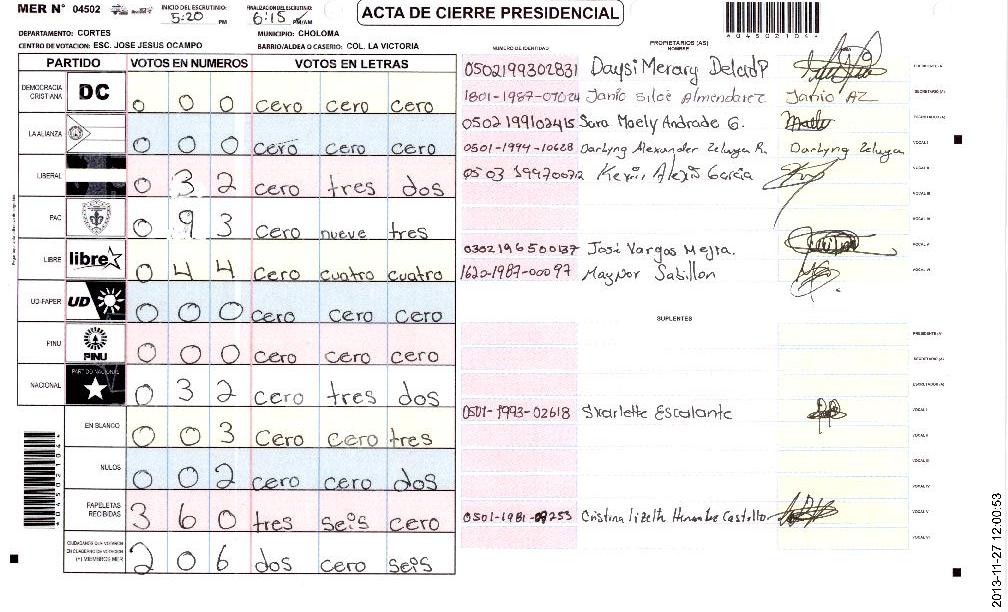 MER N° 04502
INICIO DEL ESCRUTINIO: 5:20 PM
FINALIZACION DEL ESCRUTINIO: 6:15 PM/AM
ACTA DE CIERRE PRESIDENCIAL
04502104
DEPARTAMENTO: CORTES
MUNICIPIO: CHOLOMA
CENTRO DE VOTACION: ESC. JOSE JESUS OCAMPO
BARRIO/ALDEA O CASERIO: COL. LA VICTORIA
PARTIDO VOTOS EN NUMEROS VOTOS EN LETRAS
DEMOCRACIA CRISTIANA DC 0 0 0 cero cero cero
LA ALIANZA 0 0 0 cero cero cero
LIBERAL 0 3 2 cero tres dos
PAC 0 9 3 cero nueve tres
LIBRE libre 0 4 4 cero cuatro cuatro
UD-FAPER UD 0 0 0 cero cero cero
PINU PINU 0 0 0 cero cero cero
NACIONAL PARTIDO NACIONAL 0 3 2 cero tres dos
EN BLANCO 0 0 3 cero cero tres
NULOS 0 0 2 cero cero dos
PAPELETAS RECIBIDAS 3 6 0 tres seis cero
CIUDADANOS QUE VOTARON EN CUADERNO DE VOTACION (+) MIEMBROS MER 2 0 6 dos cero seis
04502104
NUMERO DE IDENTIDAD
PROPIETARIOS (AS)
NOMBRE
0502199302831 Daysi Merary PRESIDENTE (A)
1801-1987-07024 Janio Siloe Almendarez Janio AZ SECRETARIO (A)
0502199102415 Sara Maely Andrade G. ESCRUTADOR (A)
0501-1994-10628 Darlyng Alexander Zelaya R. Darlyng Zelaya VOCAL I
Kevin Alexis Garcia VOCAL II
VOCAL III
VOCAL IV
0302196500137 José Vargas Mejia. VOCAL V
1620-1987-00097 Maynor Sabillon VOCAL VI
SUPLENTES
PRESIDENTE (A)
SECRETARIO (A)
ESCRUTADOR (A)
0501-1993-02618 Skarlette Escalante VOCAL I
VOCAL II
VOCAL III
VOCAL IV
Cristina lizeth Castillo VOCAL V
VOCAL VI
2013-11-27 12:00:53